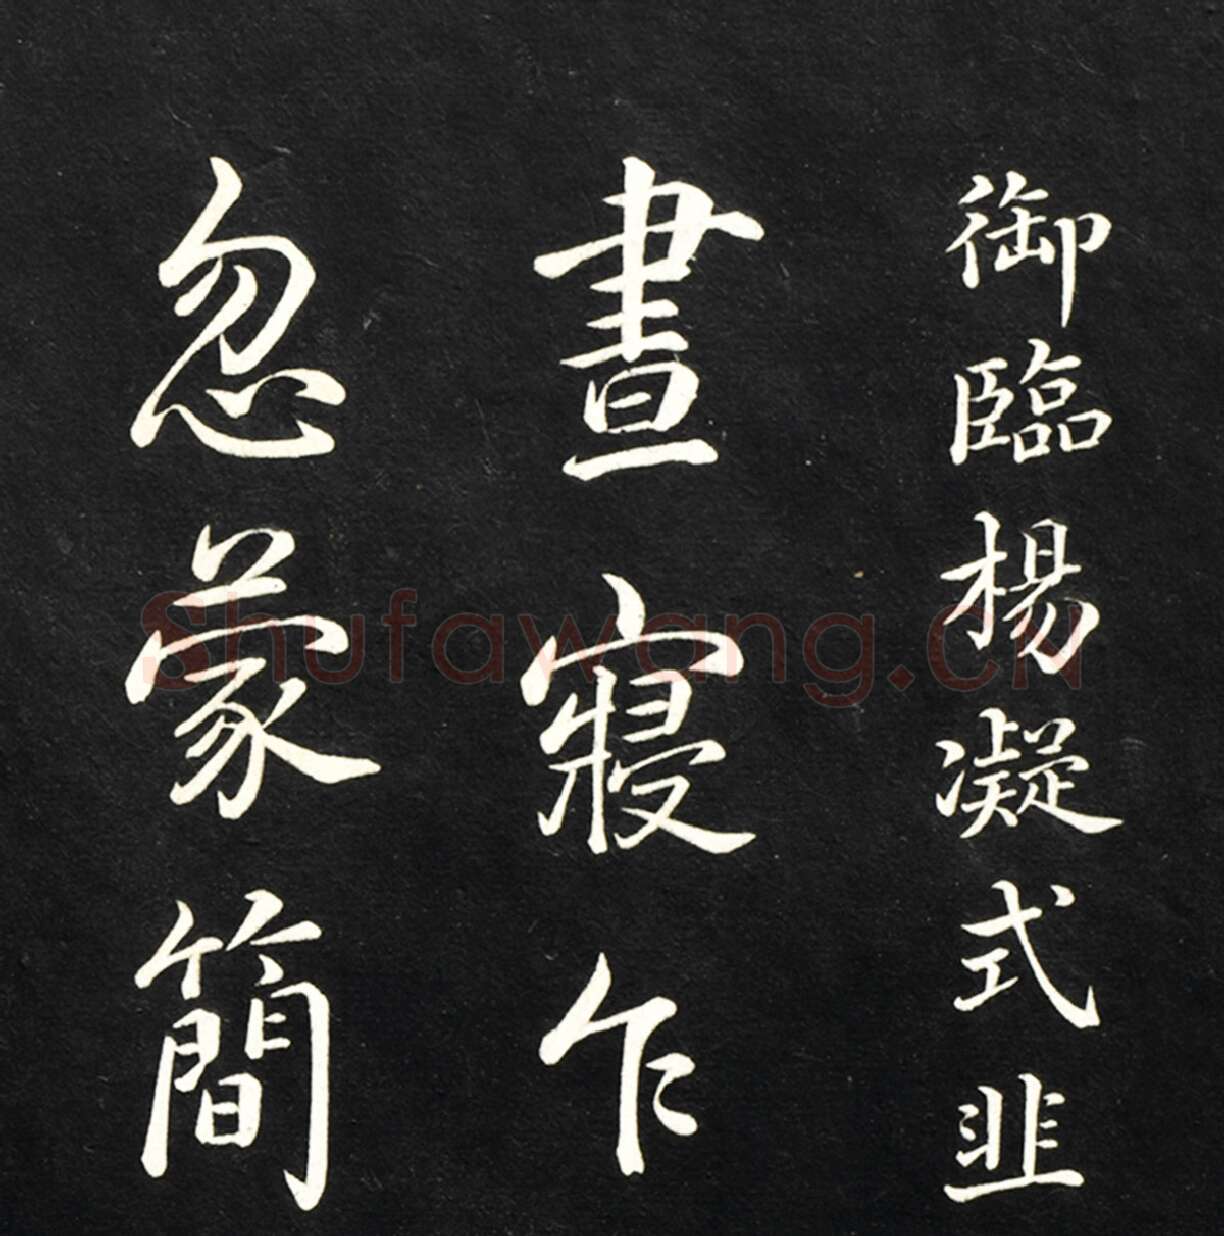 御臨楊凝式韭
晝寢乍
忽蒙簡
Shufawang.cn